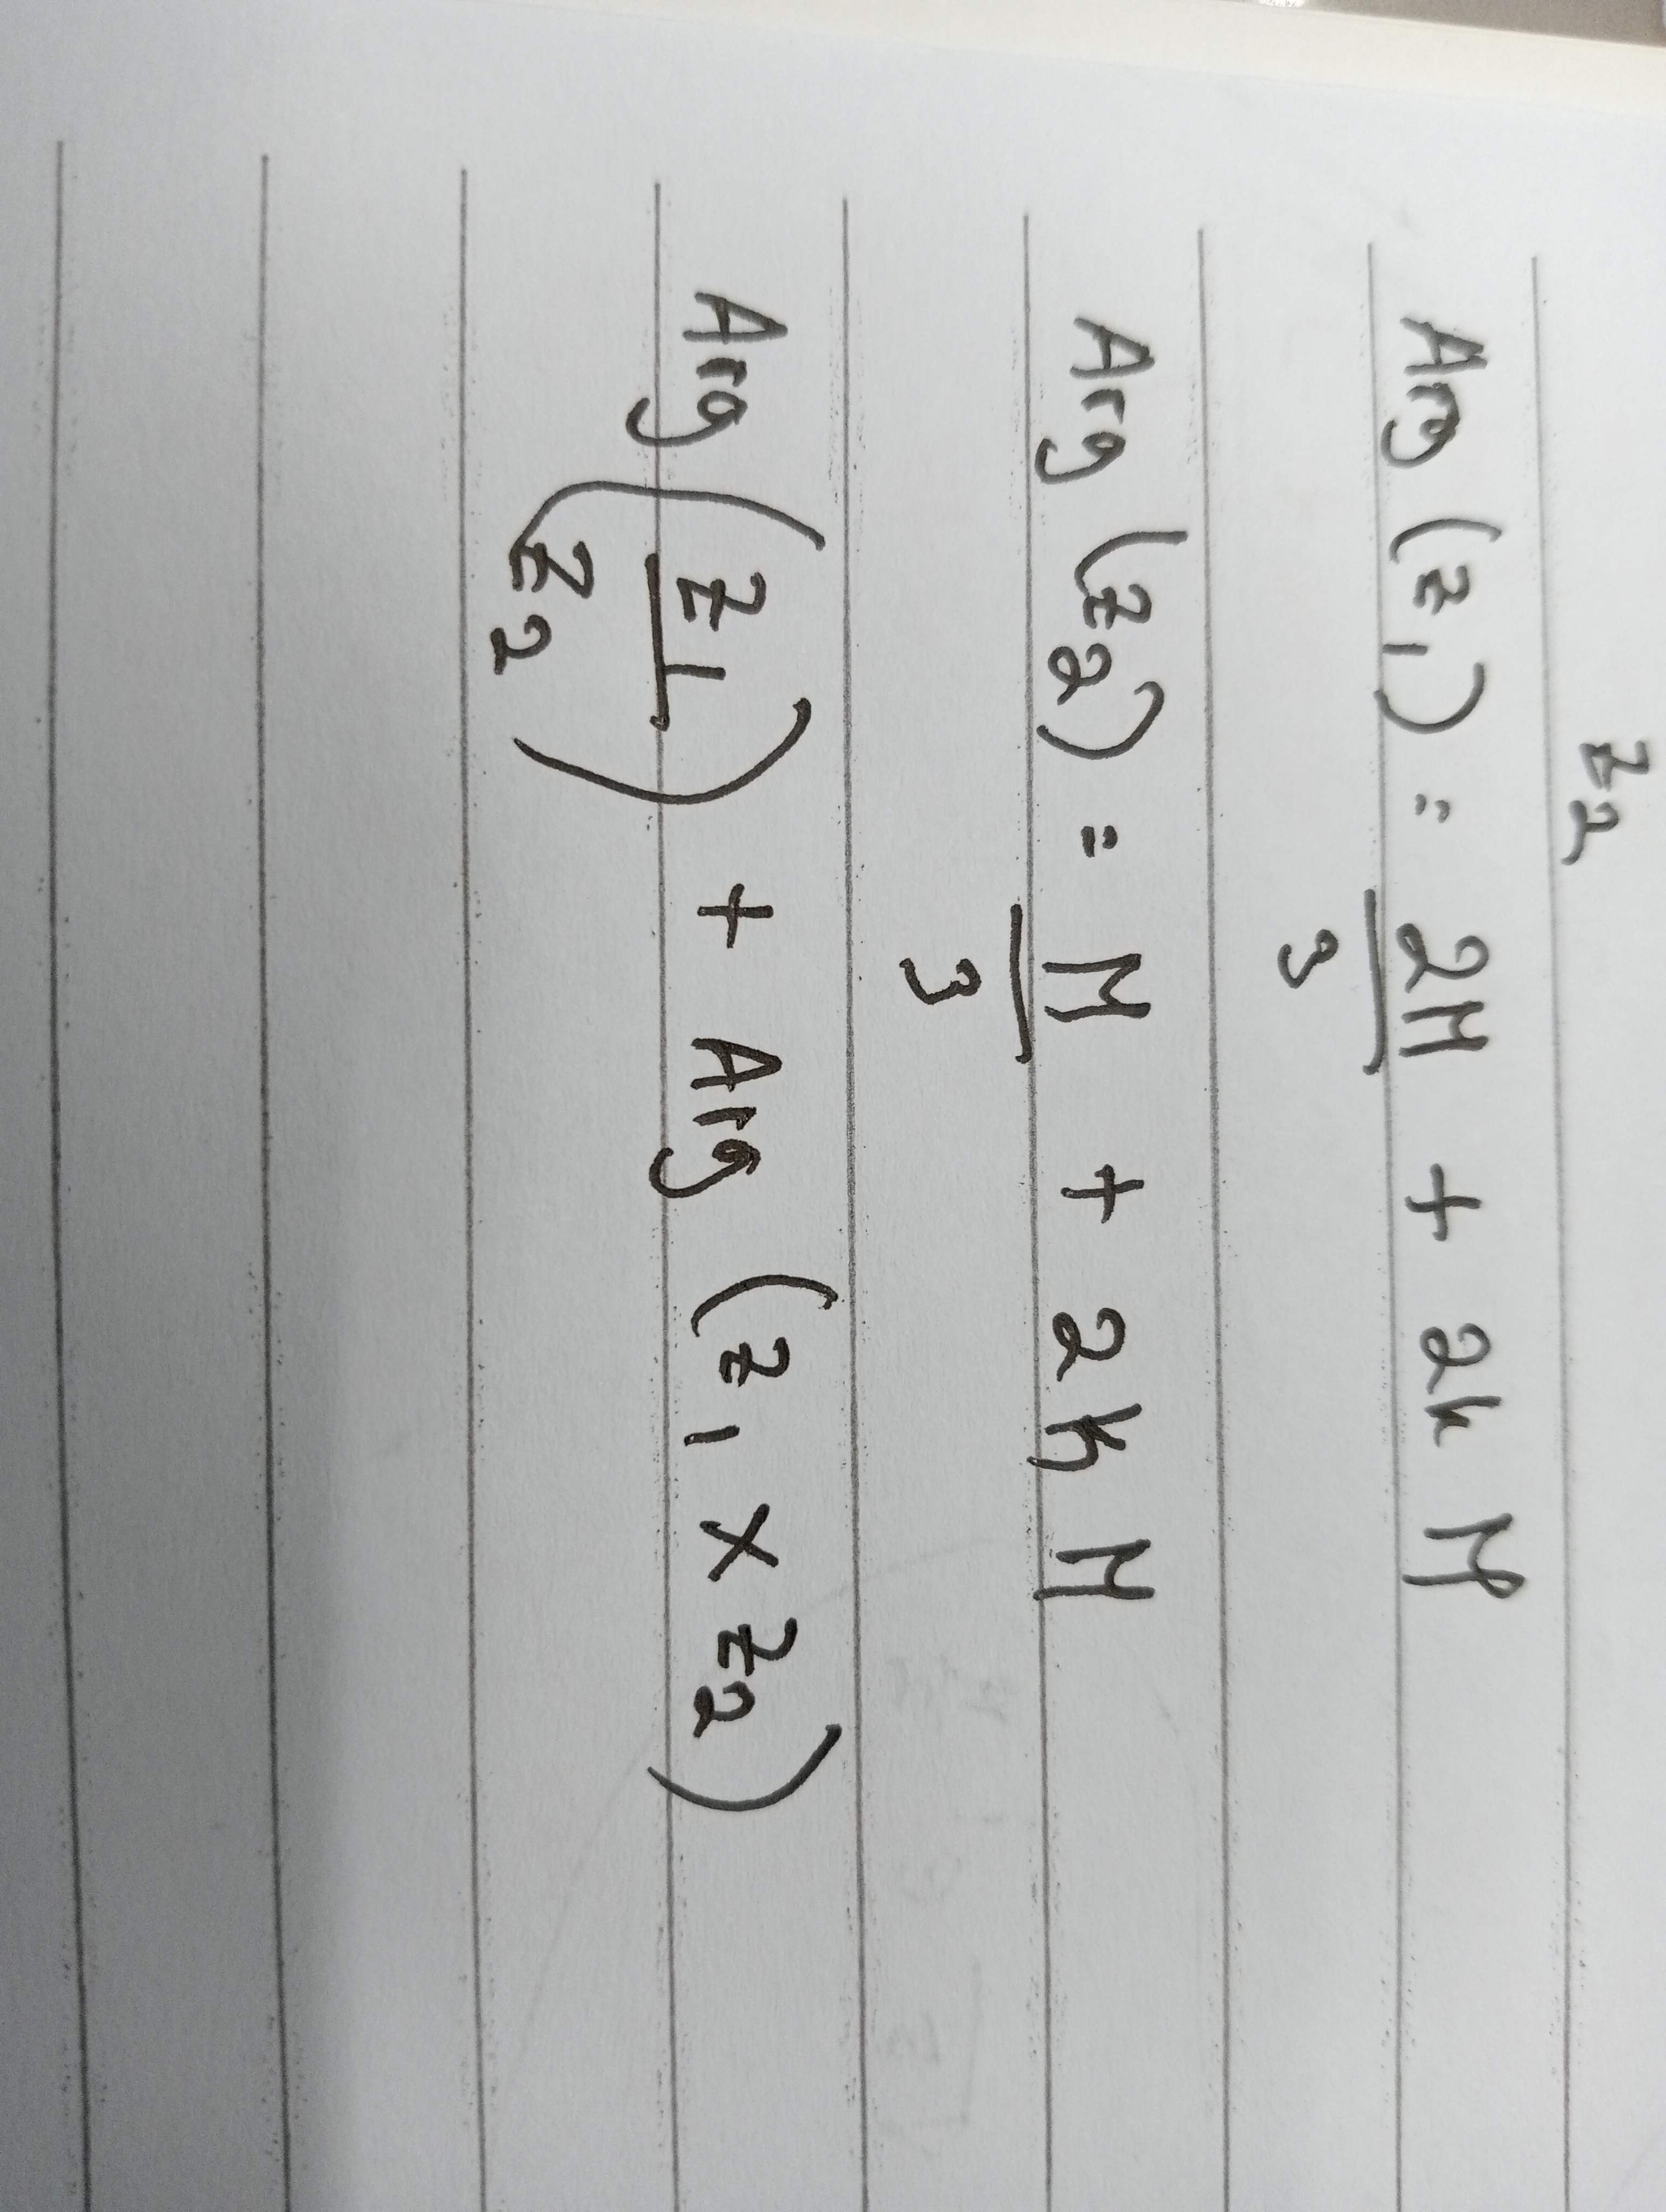 z2
Arg (z1) = 2π/3 + 2kπ
Arg (z2) = π/3 + 2kπ
Arg (z1/z2) + Arg (z1 × z2)